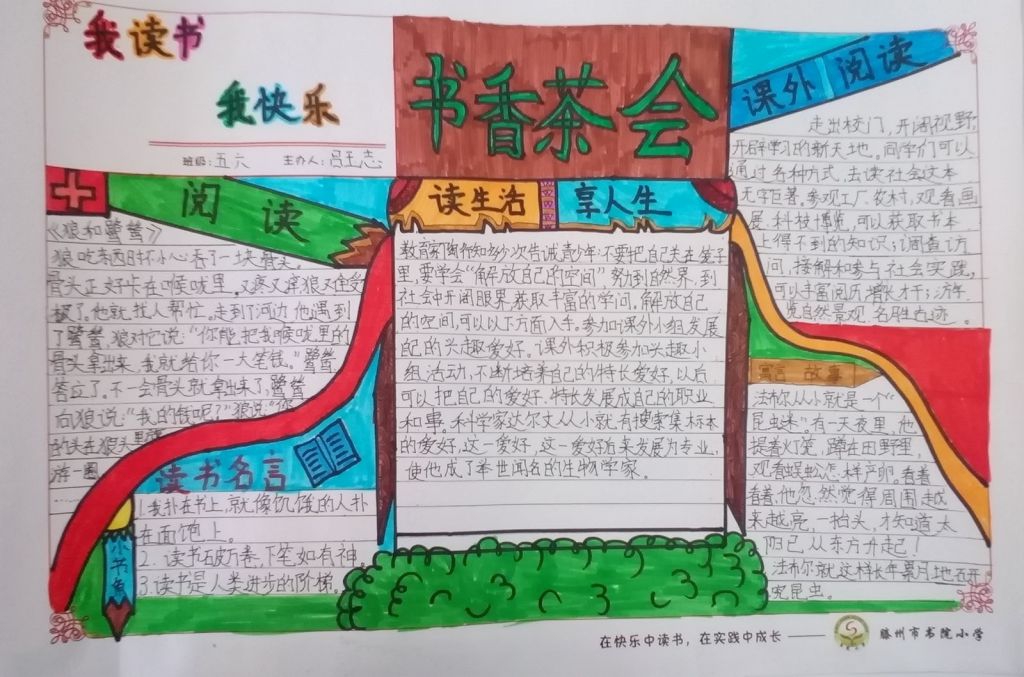 我读书
我快乐
班级：五六 主办人：吕玉志
书香茶会
课外阅读
走出校门，开阔视野，
开辟学习的新天地。同学们可以
通过各种方式，去读社会这本
无字巨著，参观工厂、农村，观看画
展、科技博览，可以获取书本
上得不到的知识；调查访
问，接触和参与社会实践，
可以丰富阅历，增长才干；游
览自然景观、名胜古迹。
阅读
《狼和鹭鸶》
狼吃东西时不小心吞了一块骨头。
骨头正好卡在喉咙里。又疼又痒狼
了，他就找人帮忙，走到了河边他遇到
了鹭鸶，狼对它说：“你能把我喉咙里的
骨头拿出来，我就给你一大笔钱。”鹭鸶
答应了。不一会骨头就拿出来了，鹭鸶
向狼说：“我的钱呢？”狼说：“你
的头在狼头里
游一圈
……
读书名言
1.我扑在书上，就像饥饿的人扑
在面包上。
2.读书破万卷，下笔如有神。
3.读书是人类进步的阶梯。
小书角
读生活
享人生
教育家陶行知多次告诫青少年：不要把自己关在笼子
里，要学会“解放自己的空间”，努到自然界，到
社会中开阔眼界，获取丰富的学问，解放自己
的空间，可以以下方面入手。参加课外小组发展
自己的兴趣爱好。课外积极参加兴趣小
组活动，不断培养自己的特长爱好，以后
可以把自己的爱好，特长发展成自己的职业
和事。科学家达尔文从小就有搜索集标本
的爱好，这一爱好，这一爱好后来发展为专业，
使他成了举世闻名的生物学家。
寓言故事
法布尔从小就是一个“
昆虫迷”。有一天夜里，他
提着灯笼，蹲在田野里，
观看蜈蚣怎样产卵。看着
看着他忽然觉得周围越
来越亮，一抬头，才知道太
阳已从东方升起！
法布尔就这样长年累月地研
究昆虫。
在快乐中读书，在实践中成长 ——
滕州市书院小学